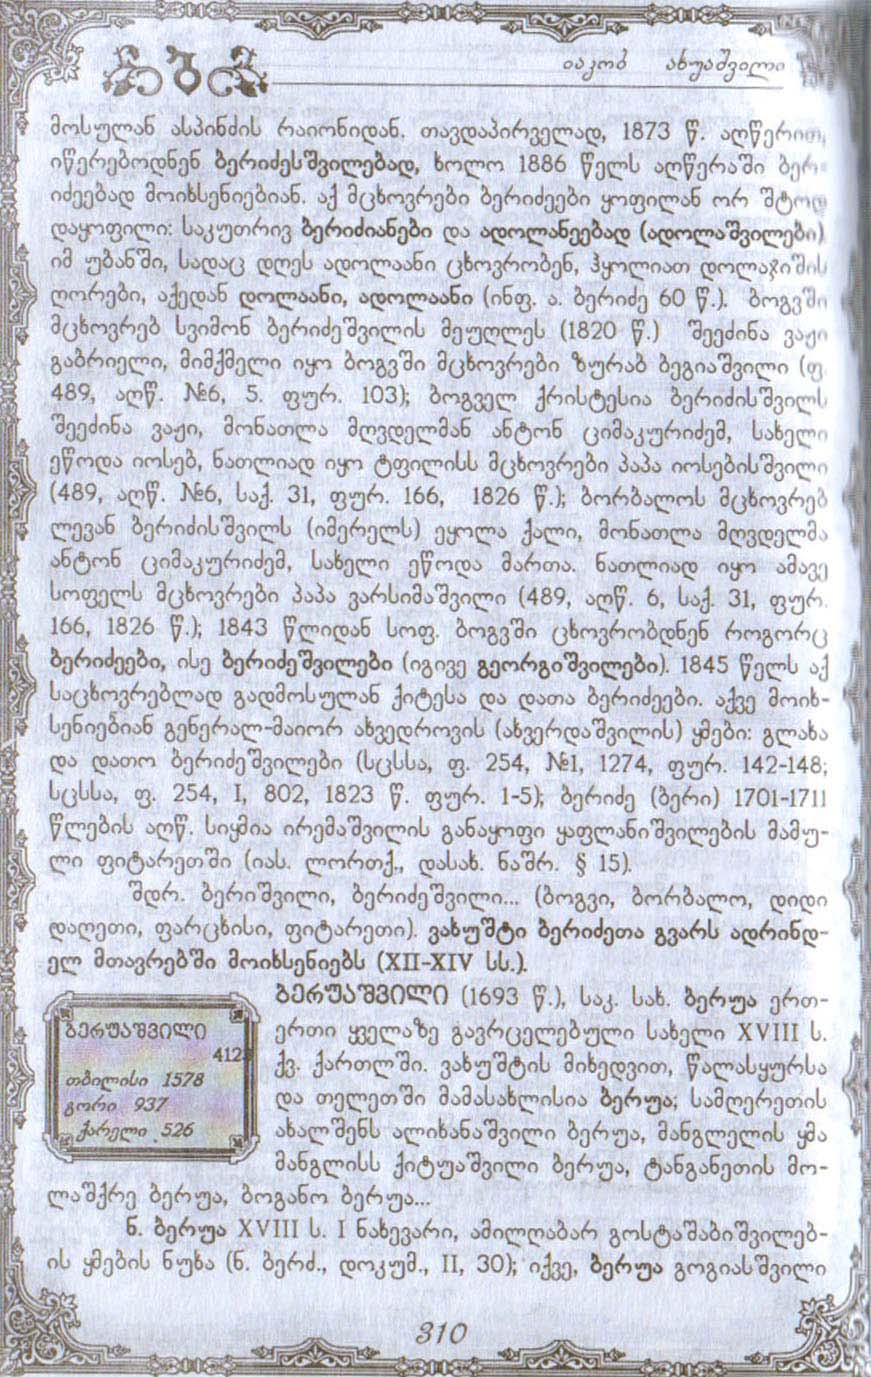 იაკობ ახუაშვილი
მოსულან ასპინძის რაიონიდან. თავდაპირველად, 1873 წ. აღწერით,
იწერებოდნენ ბერიძესშვილებად, ხოლო 1886 წელს აღწერაში ბერ-
იძეებად მოიხსენიებიან. აქ მცხოვრები ბერიძეები ყოფილან ორ შტოდ
დაყოფილი: საკუთრივ ბერიძიანები და ადოლანეებად (ადოლაშვილები)
იმ უბანში, სადაც დღეს ადოლაანი ცხოვრობენ, ჰყოლიათ დოლაჯიშის
ღორები, აქედან დოლაანი, ადოლაანი (ინფ. ა. ბერიძე 60 წ.). ბოგვში
მცხოვრებ სვიმონ ბერიძეშვილის მეუღლეს (1820 წ.) შეეძინა ვაჟი
გაბრიელი, მიმქმელი იყო ბოგვში მცხოვრები ზურაბ ბეგიაშვილი (ფ.
489, აღწ. №6, 5. ფურ. 103); ბოგველ ქრისტესია ბერიძისშვილს
შეეძინა ვაჟი, მონათლა მღვდელმან ანტონ ციმაკურიძემ, სახელი
ეწოდა იოსებ, ნათლიად იყო ტფილისს მცხოვრები პაპა იოსებისშვილი
(489, აღწ. №6, საქ. 31, ფურ. 166, 1826 წ.); ბორბალოს მცხოვრებ
ლევან ბერიძისშვილს (იმერელს) ეყოლა ქალი, მონათლა მღვდელმა
ანტონ ციმაკურიძემ, სახელი ეწოდა მართა. ნათლიად იყო ამავე
სოფელს მცხოვრები პაპა ვარსიმაშვილი (489, აღწ. 6, საქ. 31, ფურ.
166, 1826 წ.); 1843 წლიდან სოფ. ბოგვში ცხოვრობდნენ როგორც
ბერიძეები, ისე ბერიძეშვილები (იგივე გეორგიშვილები). 1845 წელს აქ
საცხოვრებლად გადმოსულან ქიტესა და დათა ბერიძეები. აქვე მოიხ-
სენიებიან გენერალ-მაიორ ახვედროვის (ახვერდაშვილის) ყმები: გლახა
და დათო ბერიძეშვილები (სცსსა, ფ. 254, №1, 1274, ფურ. 142-148;
სცსსა, ფ. 254, I, 802, 1823 წ. ფურ. 1-5); ბერიძე (ბერი) 1701-1711
წლების აღწ. სიყმია ირემაშვილის განაყოფი ყაფლანიშვილების მამუ-
ლი ფიტარეთში (იას. ლორთქ., დასახ. ნაშრ. § 15).
შდრ. ბერიშვილი, ბერიძეშვილი... (ბოგვი, ბორბალო, დიდი
დაღეთი, ფარცხისი, ფიტარეთი). ვახუშტი ბერიძეთა გვარს ადრინდ-
ელ მთავრებში მოიხსენიებს (XII-XIV სს.).
ბერუაშვილი (1693 წ.), საკ. სახ. ბერუა ერთ-
ერთი ყველაზე გავრცელებული სახელი XVIII ს.
ქვ. ქართლში. ვახუშტის მიხედვით, წალასყურსა
და თელეთში მამასახლისია ბერუა; სამღერეთის
ახალშენს ალიხანაშვილი ბერუა, მანგლელის ყმა
მანგლისს ქიტუაშვილი ბერუა, ტანგანეთის მო-
ლაშქრე ბერუა, ბოგანო ბერუა...
ბერუაშვილი
412
თბილისი 1578
გორი 937
ქარელი 526
ნ. ბერუა XVIII ს. I ნახევარი, ამილღაბარ გოსტაშაბიშვილებ-
ის ყმების ნუსა (ნ. ბერძ., დოკუმ., II, 30); იქვე, ბერუა გოგიასშვილი
310